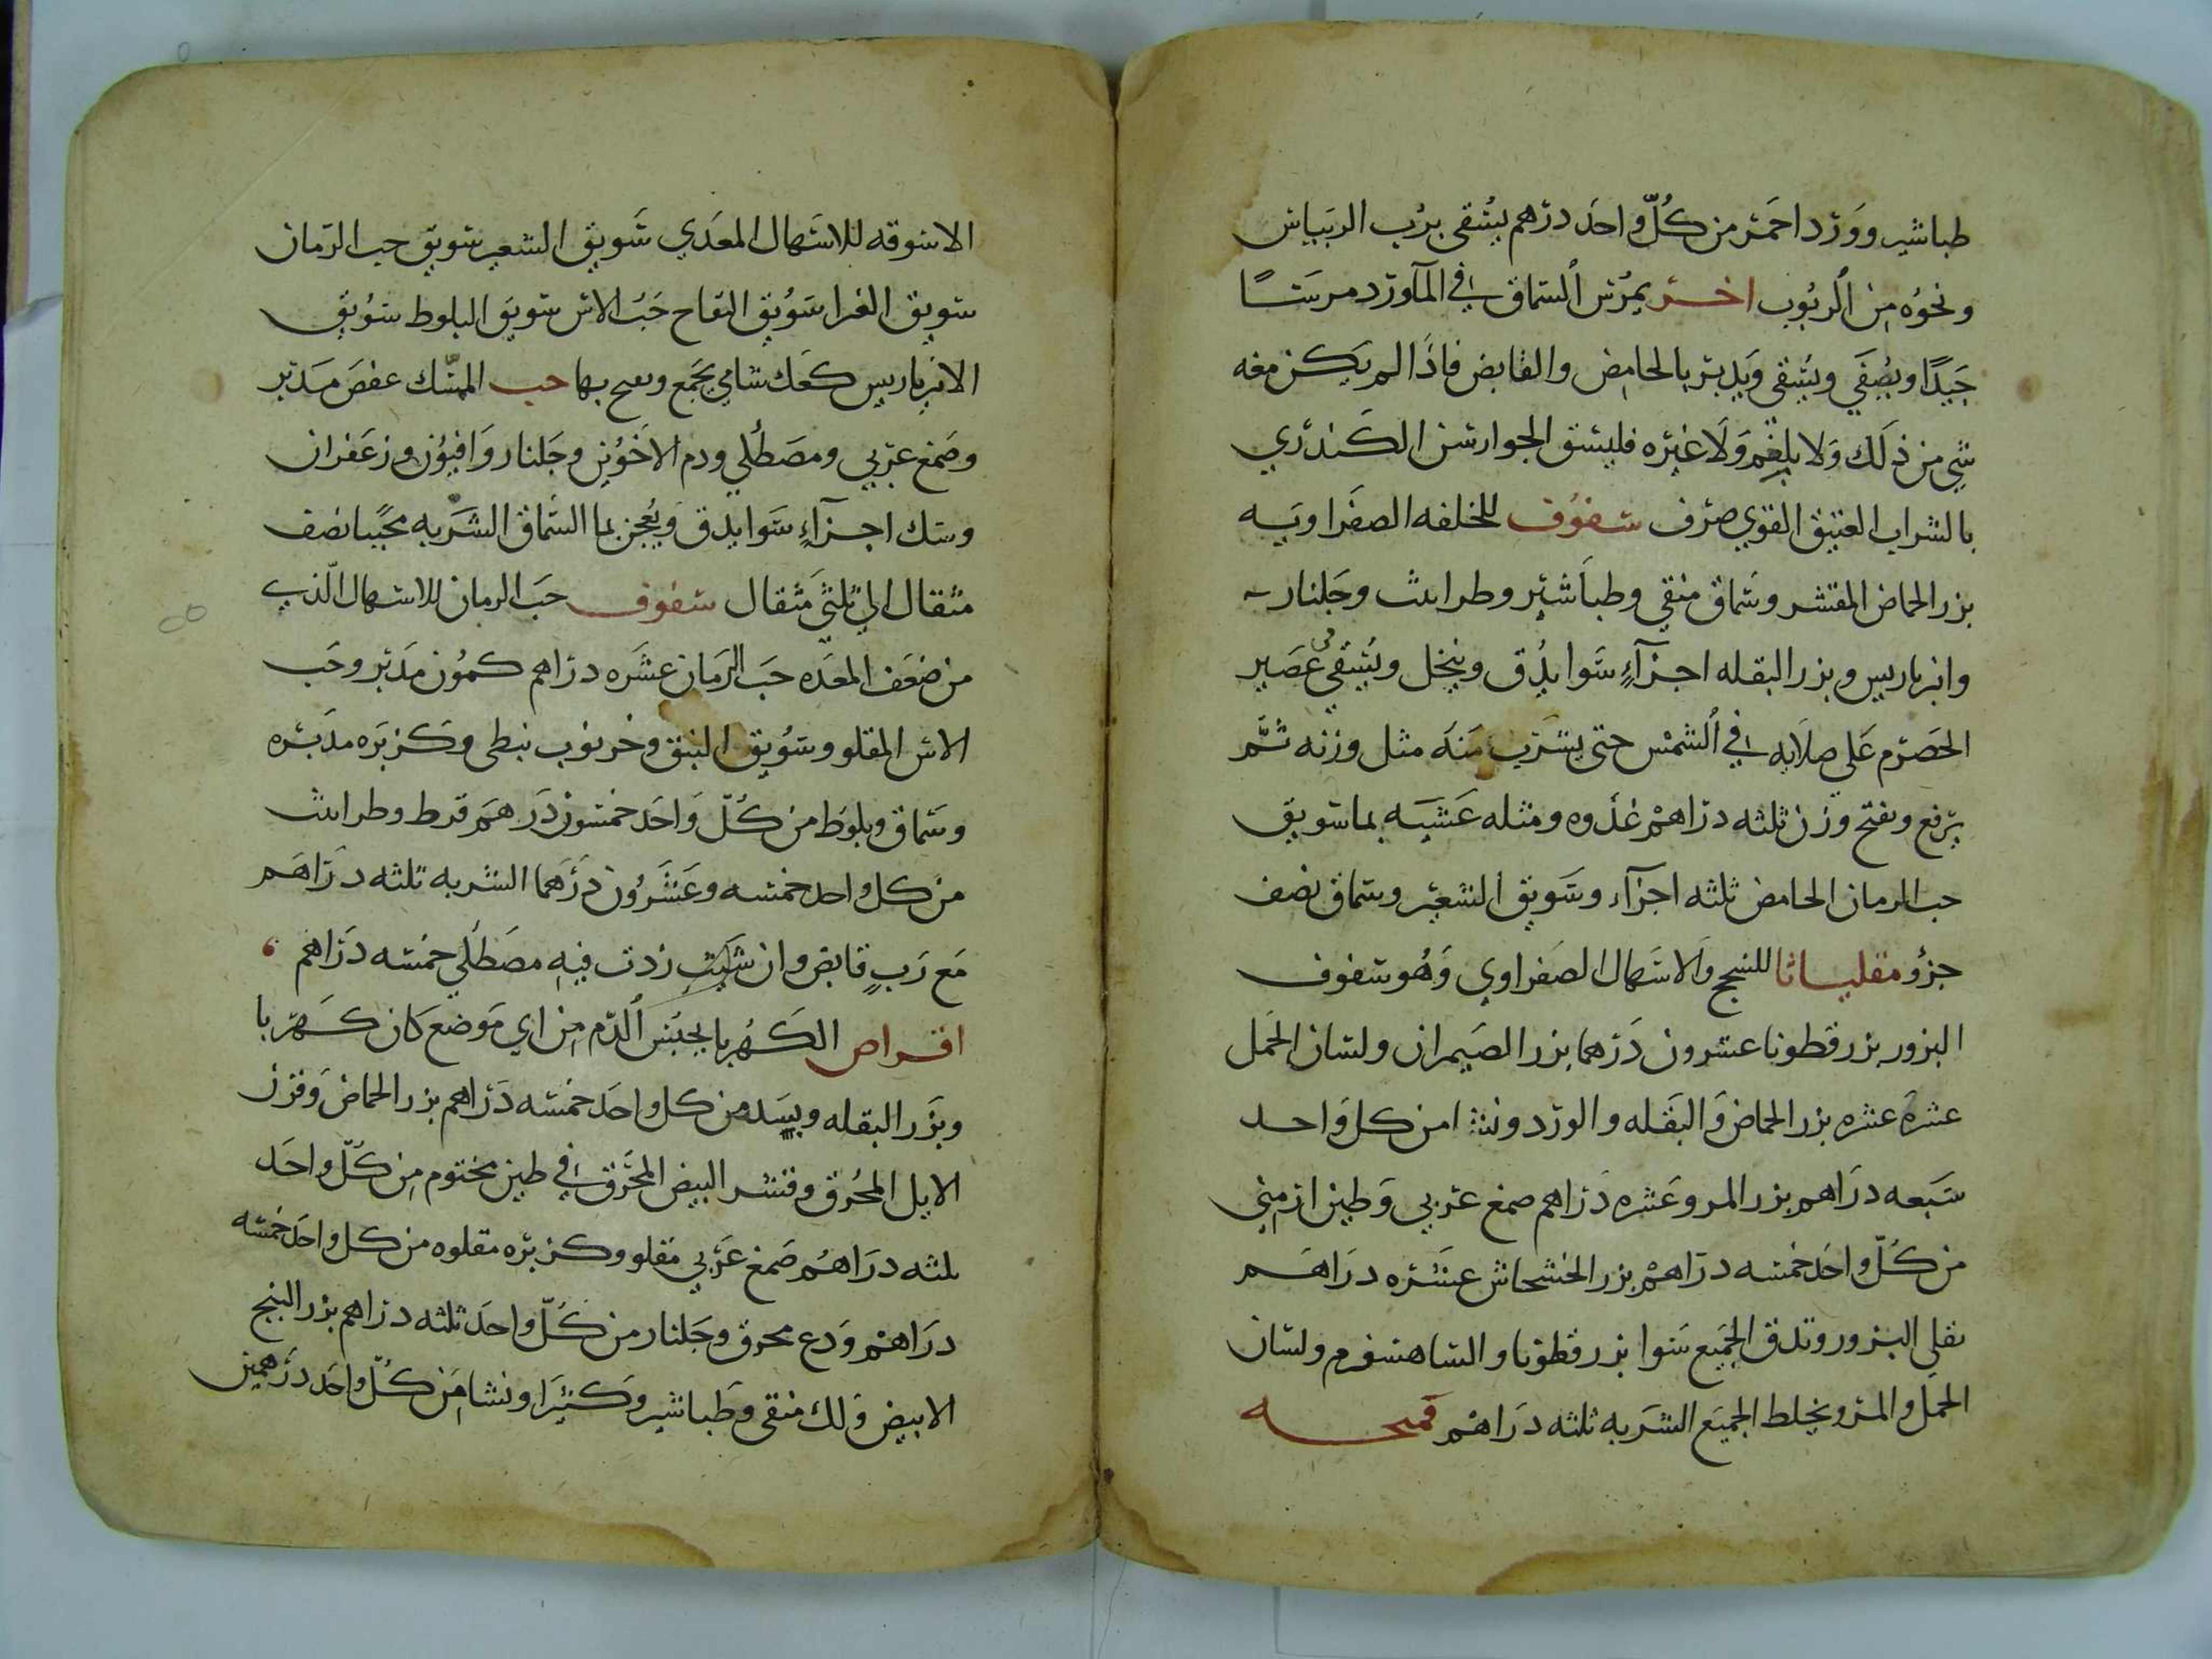 طباشير وورد احمر من كل واحد درهم يسقى برب الريباس
ونحوه من الربوب اخر يمرس السماق في الماورد مرسا
جيدا ويصفي ويسقى ويدبر بالحامض والقابض فاذا لم يكن معه
شي من ذلك ولا بلغم ولا غيره فليسق الجوارشن الكندري
بالشراب العتيق القوي صرف سفوف للخلفه الصفراويه
بزر الحماض المقشر وسماق منقي وطباشير وطراثيث وجلنار
وانبرباريس وبزر البقله اجزآء سوا يدق وينخل ويسقى عصير
الحصرم علي صلايه في الشمس حتى يشرب منه مثل وزنه ثم
يرفع ويقمح وزن ثلثه دراهم غدوه ومثله عشيه بما سويق
حب الرمان الحامض ثلثه اجزآء وسويق الشعير وسماق نصف
جزؤ مقلياثا للسحج والاسهال الصفراوي وهو سفوف
البزور بزر قطونا عشرون درهما بزر الضيمران ولسان الحمل
عشره عشره بزر الحماض والبقله والورد ونشا من كل واحد
سبعه دراهم بزر المرو عشره دراهم صمغ عربي وطين ارميني
من كل واحد خمسه دراهم بزر الخشخاش عشره دراهم
تقلي البزور وتدق الجميع سوا بزر قطونا والشاهسفرم ولسان
الحمل والمرو ويخلط الجميع الشربه ثلثه دراهم قميحه
الاسوقه للاسهال المعدي سويق الشعير سويق حب الرمان
سويق الغبرا سويق التفاح حب الاس سويق البلوط سويق
الانبرباريس كعك شامي يجمع بها حب المسك عفص مدبر
وصمغ عربي ومصطكي ودم الاخوين وجلنار وافيون وزعفران
وسك اجزآء سوا يدق ويعجن بما السماق الشربه محببا نصف
مثقال الي ثلثي مثقال سفوف حب الرمان للاسهال الذي
من ضعف المعده حب الرمان عشره دراهم كمون مدبر وحب
الاس المقلو وسويق النبق وخرنوب نبطي وكزبره مدبره
وسماق وبلوط من كل واحد خمسون درهم قرط وطراثيث
من كل واحد خمسه وعشرون درهما الشربه ثلثه دراهم
مع رب قابض وان شيت زدت فيه مصطكي خمسه دراهم
اقراص الكهربا يحبس الدم من اي موضع كان كهربا
وبزر البقله وبسد من كل واحد خمسه دراهم بزر الحماض وقرن
الايل المحرق وقشر البيض المحرق في طين مختوم من كل واحد
ثلثه دراهم صمغ عربي مقلو وكزبره مقلوه من كل واحد خمسه
دراهم ودع محرق وجلنار من كل واحد ثلثه دراهم بزر البنج
الابيض ولك منقي وطباشير وكثيرا ونشا من كل واحد درهمين